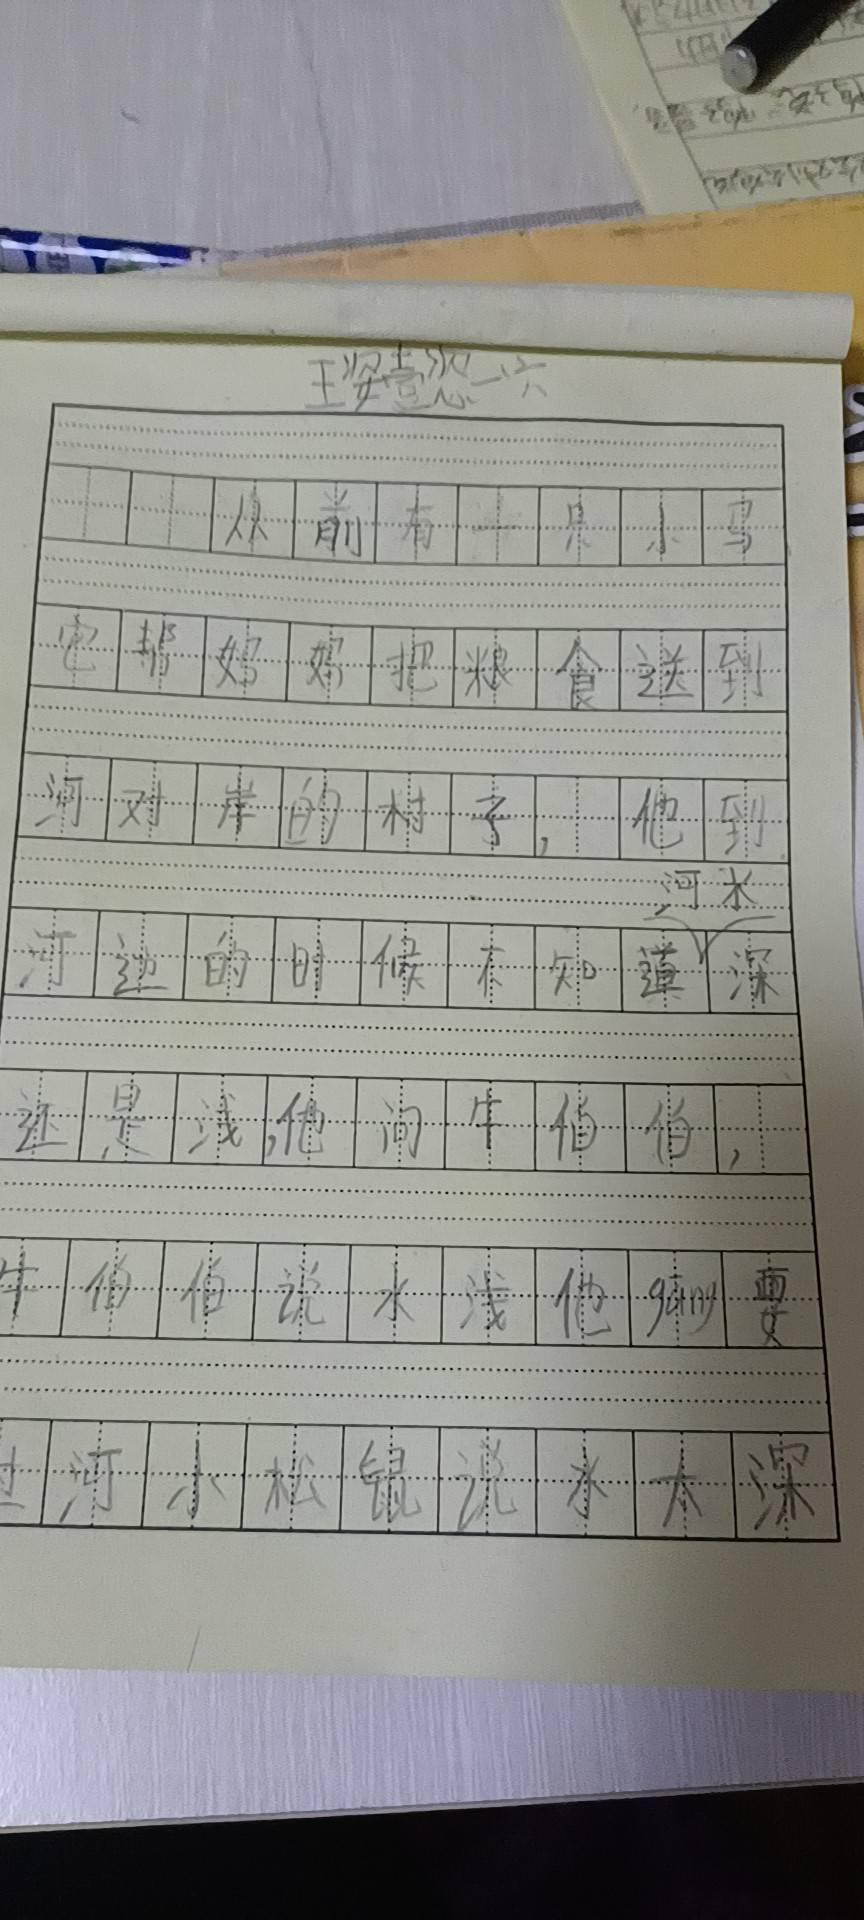 王姿壹恣一六
从前有一只小马
它帮妈妈把粮食送到
河对岸的村子，他到
河水
河边的时候不知道深
还是浅，他问牛伯伯，
牛伯伯说水浅他gāng要
过河小松鼠说水太深